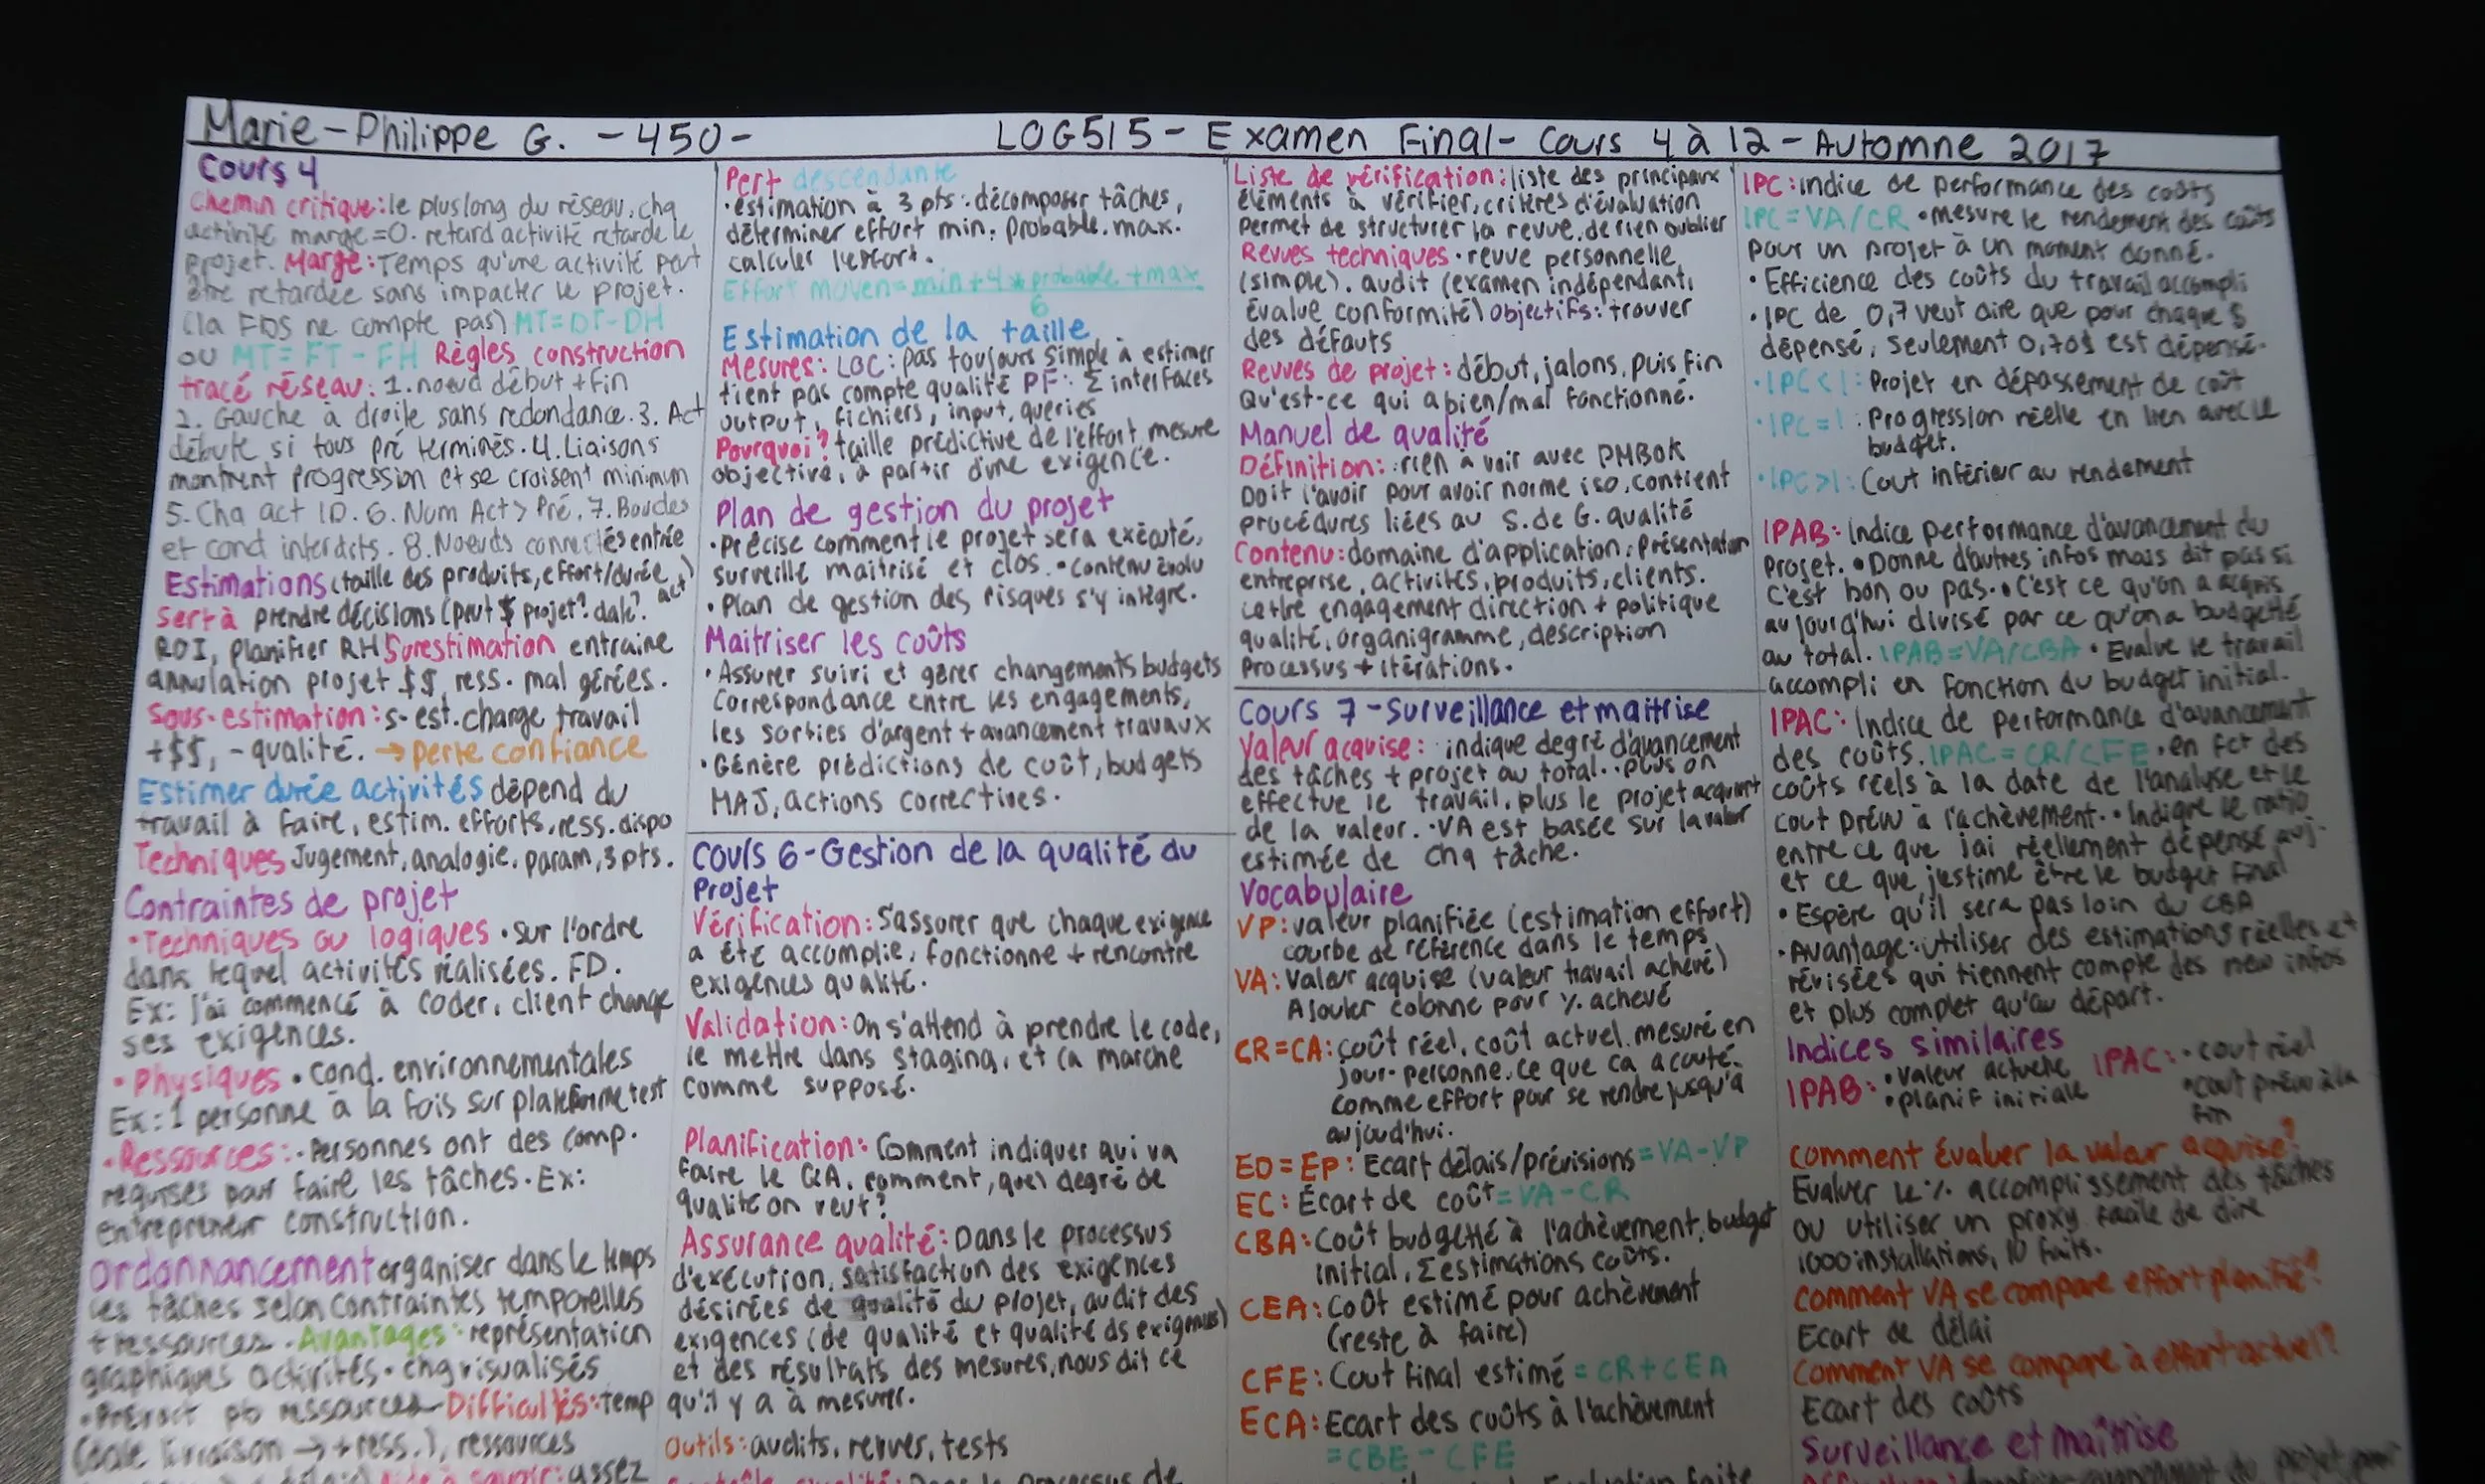 Marie-Philippe G. - 450 - LOG515 - Examen Final - Cours 4 à 12 - Automne 2017
Cours 4
Chemin critique: le plus long du réseau, chq
activité marge=0. retard activité retarde le
projet. Marge: Temps qu'une activité peut
être retardée sans impacter le projet.
(la FDS ne compte pas) MT=DT-DH
ou MT= FT - FH Règles construction
tracé réseau: 1. noeud début + fin
2. Gauche à droite sans redondance. 3. Act
débute si tous pré terminés. 4. Liaisons
montrent progression et se croisent minimum
5. Chq act ID. 6. Num Act > Pré. 7. Boucles
et cond interdits. 8. Noeuds connectés entrée
Estimations (taille des produits, effort/durée act)
Sert à prendre décisions (peut $ projet? date?
ROI, planifier RH Surestimation entraine
annulation projet $$, ress. mal gérées.
Sous-estimation: s-est. charge travail
+$$, - qualité. → perte confiance
Estimer durée activités dépend du
travail à faire, estim. efforts, ress. dispo
Techniques Jugement, analogie, param, 3 pts.
Contraintes de projet
• Techniques ou logiques • sur l'ordre
dans lequel activités réalisées. FD.
Ex: J'ai commencé à coder, client change
ses exigences.
• Physiques • Cond. environnementales
Ex: 1 personne à la fois sur plateforme test
• Ressources: • Personnes ont des comp.
requises pour faire les tâches. Ex:
entrepreneur construction.
Ordonnancement organiser dans le temps
les tâches selon contraintes temporelles
+ ressources. Avantages: représentation
graphiques activités • chg visualisés
pb ressources Difficultés: temp
livraison → + ress.), ressources
assez
Pert descendante
• estimation à 3 pts: décomposer tâches,
déterminer effort min. probable. max.
calculer l'effort.
Effort moyen= min + 4 * probable + max
6
Estimation de la taille
Mesures: LOC: pas toujours simple à estimer
tient pas compte qualité PF: Σ interfaces
output, fichiers, input, queries
Pourquoi? taille prédictive de l'effort, mesure
objective, à partir d'une exigence.
Plan de gestion du projet
• Précise comment le projet sera exécuté,
surveillé maitrisé et clos. • contenu évolu
• Plan de gestion des risques s'y intègre.
Maitriser les coûts
• Assurer suivi et gérer changements budgets
Correspondance entre les engagements,
les sorties d'argent + avancement travaux
• Génère prédictions de coût, budgets
MAJ, actions correctives.
Cours 6 - Gestion de la qualité du
Projet
Vérification: S'assurer que chaque exigence
a été accomplie, fonctionne + rencontre
exigences qualité.
Validation: On s'attend à prendre le code,
le mettre dans staging, et ca marche
comme supposé.
Planification: Comment indiquer qui va
faire le QA, comment, quel degré de
qualité on veut?
Assurance qualité: Dans le processus
d'exécution, satisfaction des exigences
désirées de qualité du projet, audit des
exigences (de qualité et qualité ds exigences)
et des résultats des mesures, nous dit ce
qu'il y a à mesurer.
Outils: audits, revues, tests
Dans le processus de
Liste de vérification: liste des principaux
éléments à vérifier, critères d'évaluation
Permet de structurer la revue, de rien oublier
Revues techniques • revue personnelle
(simple). audit (examen indépendant,
évalue conformité) Objectifs: trouver
des défauts
Revues de projet: début, jalons, puis fin
Qu'est-ce qui a bien/mal fonctionné.
Manuel de qualité
Définition: rien à voir avec PMBOK
Doit l'avoir pour avoir norme iso, contient
procédures liées au S. de G. qualité
Contenu: domaine d'application, Présentation
entreprise, activités, produits, clients.
Lettre engagement direction + politique
qualité, organigramme, description
Processus + itérations.
Cours 7 - Surveillance et maitrise
Valeur acquise: indique degré d'avancement
des tâches + projet au total. • Plus on
effectue le travail, plus le projet acquiert
de la valeur. • VA est basée sur la valeur
estimée de chq tâche.
Vocabulaire
VP: valeur planifiée (estimation effort)
courbe de référence dans le temps
VA: Valeur acquise (valeur travail achevé)
Ajouter colonne pour % achevé
CR=CA: coût réel, coût actuel mesuré en
jour-personne. Ce que ca a couté.
comme effort pour se rendre jusqu'à
aujoud'hui.
ED = EP: Ecart délais/prévisions = VA-VP
EC: Écart de coût = VA-CR
CBA: Coût budgétté à l'achèvement, budget
initial, Σ estimations coûts.
CEA: Coût estimé pour achèvement
(reste à faire)
CFE: Cout final estimé = CR+CEA
ECA: Ecart des coûts à l'achèvement
= CBE - CFE
IPC: indice de performance des coûts
IPC = VA/CR • mesure le rendement des coûts
pour un projet à un moment donné.
• Efficience des coûts du travail accompli
• IPC de 0,7 veut dire que pour chaque $
dépensé, seulement 0,70$ est dépensé.
• IPC<1: Projet en dépassement de coût
• IPC=1: Progression réelle en lien avec le
budget.
• IPC>1: Cout inférieur au rendement
IPAB: Indice performance d'avancement du
Projet. • Donne d'autres infos mais dit pas si
c'est bon ou pas. • C'est ce qu'on a acquis
aujourd'hui divisé par ce qu'on a budgetté
au total. IPAB=VA/CBA • Evalue le travail
accompli en fonction du budget initial.
IPAC: Indice de performance d'avancement
des coûts. IPAC = CR/CFE • en fct des
coûts réels à la date de l'analyse et le
cout prévu à l'achèvement. • Indique le ratio
entre ce que j'ai réellement dépensé auj.
et ce que j'estime être le budget final
• Espère qu'il sera pas loin du CBA
• Avantage: utiliser des estimations réelles et
révisées qui tiennent compte des new infos
et plus complet qu'au départ.
Indices similaires
IPAB: • valeur actuelle IPAC: • cout réel
• planif initiale • cout prévu à la
fin
Comment évaluer la valeur acquise?
Evaluer le % accomplissement des tâches
ou utiliser un proxy facile de dire
1000 installations, 10 faits.
Comment VA se compare effort planifié?
Ecart de délai
Comment VA se compare à effort actuel?
Ecart des coûts
Surveillance et maîtrise